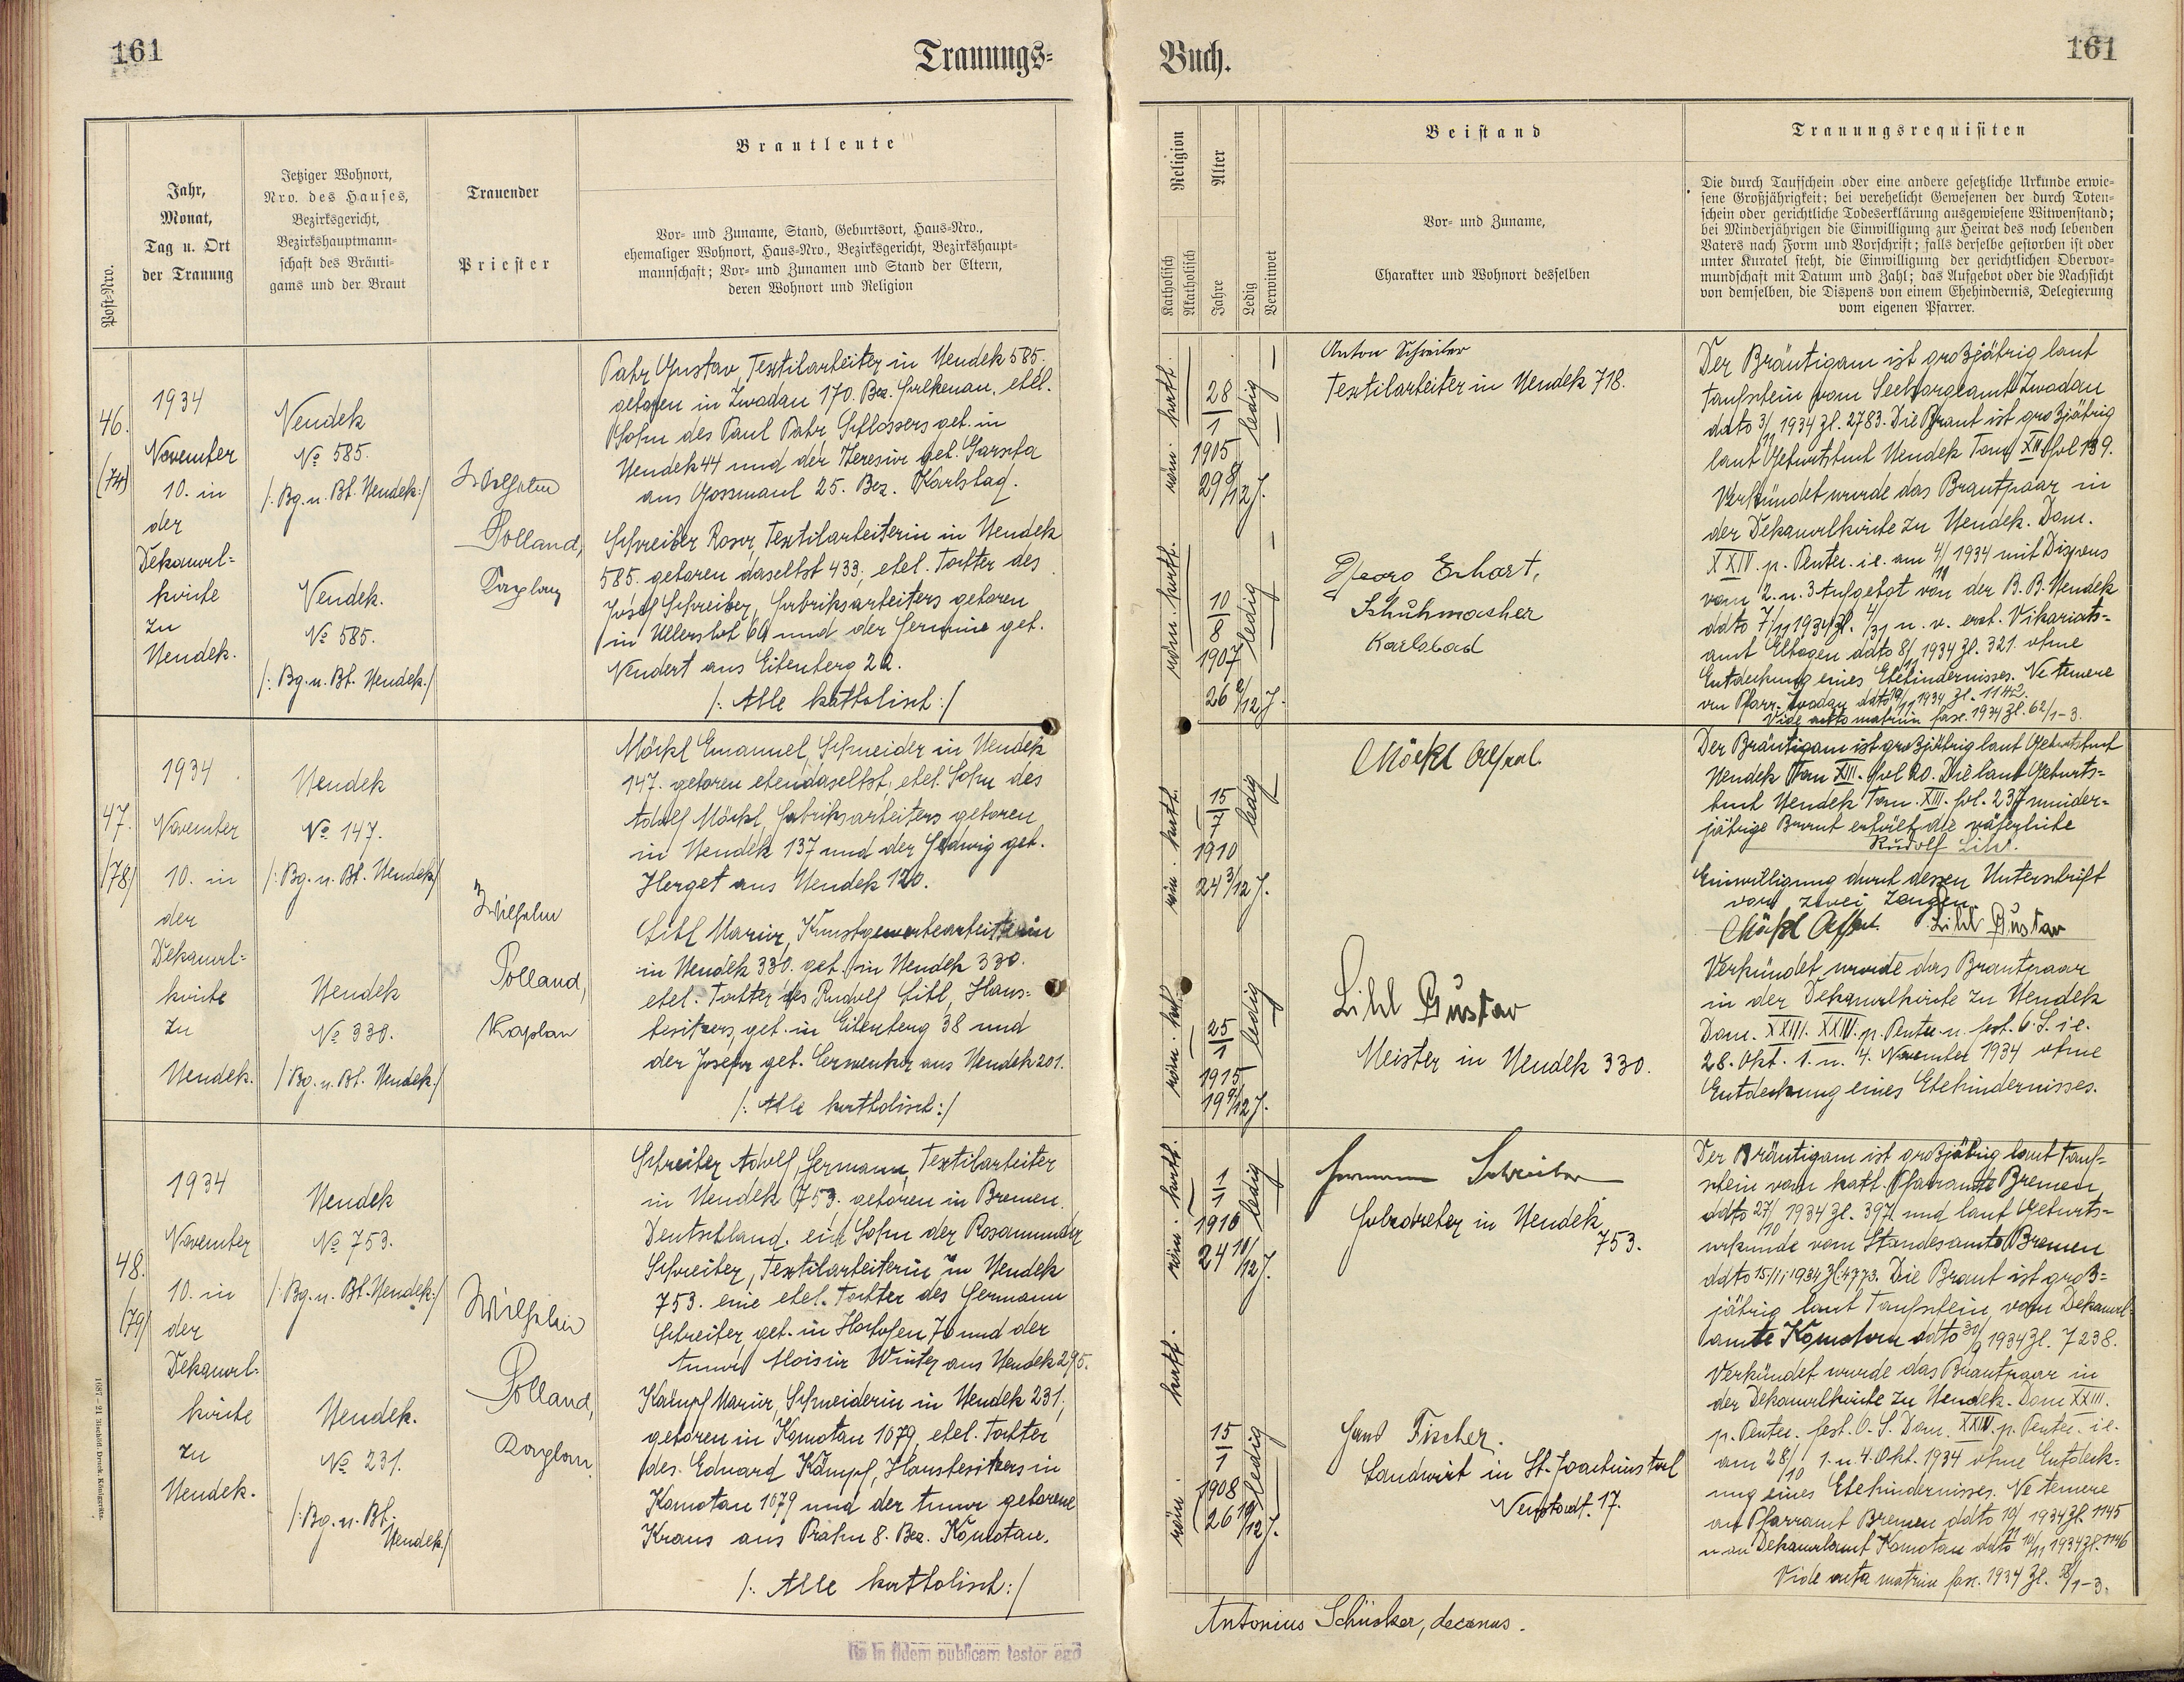 161
Trauungs=
Post-Nro.
Jahr,
Monat,
Tag u. Ort
der Trauung
Jetziger Wohnort,
Nro. des Hauses,
Bezirksgericht,
Bezirkshauptmann=
schaft des Bräuti=
gams und der Braut
Trauender
Priester
Brautleute
Vor= und Zuname, Stand, Geburtsort, Haus=Nro.,
ehemaliger Wohnort, Haus=Nro., Bezirksgericht, Bezirkshaupt=
mannschaft; Vor= und Zunamen und Stand der Eltern,
deren Wohnort und Religion
46.
(74)
1934
November
10. in
der
Dekanal=
kirche
zu
Neudek.
Neudek
No 585.
/: Bg. u. Bt. Neudek:/
Neudek.
No 585.
/: Bg. u. Bt. Neudek./
Wilhelm
Polland,
Kaplan
Pahr Gustav Textilarbeiter in Neudek 585.
geboren in Zwodau 170. Bez. Falkenau, ehel.
Sohn des Paul Pahr Schlossers geb. in
Neudek 44 und der Theresia geb.
aus Gossmaul 25. Bez. Karlsbad.
Schreiber Rosa, Textilarbeiterin in Neudek
585. geboren daselbst 433, ehel. Tochter des
Josef Schreiber, Fabriksarbeiters geboren
in Ullersloh 60 und der Hermine geb.
Neudert aus Eibenberg 22.
/: Alle katholisch:/
47.
/78/
1934
November
10. in
der
Dekanal=
kirche
zu
Neudek.
Neudek
No 147.
/: Bg. u. Bt. Neudek/
Neudek
No 330.
/: Bg. u. Bt. Neudek./
Wilhelm
Polland,
Kaplan
Möckl Emanuel, Schneider in Neudek
147. geboren ebendaselbst, ehel. Sohn des
Adolf Möckl, Fabriksarbeiters geboren
in Neudek 137 und der Hedwig geb.
Herget aus Neudek 120.
Lihl Maria, Kunstgewerbearbeiterin
in Neudek 330. geb. in Neudek 330.
ehel. Tochter des Rudolf Lihl, Haus=
besitzers, geb. in Eibenberg 38 und
der Josefa geb. Cerwenka aus Neudek 201.
/: Alle katholisch:/
48.
/79/
1934
November
10. in
der
Dekanal=
kirche
zu
Neudek.
Neudek
No 753.
/: Bg. u. Bt. Neudek:/
Neudek.
No 231.
/: Bg. u. Bt.
Neudek/
Wilhelm
Polland,
Kaplan
Schreiber Adolf, Hermann, Textilarbeiter
in Neudek 753. geboren in Bremen
Deutschland. ein Sohn der Rosamunda
Schreiber, Textilarbeiterin in Neudek
753. eine ehel. Tochter des Hermann
Schreiber geb. in Hochofen 70 und der
Anna Aloisia Winter aus Neudek 295.
Kämpf Maria, Schneiderin in Neudek 231,
geboren in Komotau 1079, ehel. Tochter
des Eduard Kämpf, Hausbesitzers in
Komotau 1079 und der Anna geborene
Kraus aus Prahn 8. Bez. Komotau.
/: Alle katholisch:/
Ita in fidem publicam testor ego
Buch.
161
Religion
Katholisch
Akatholisch
Alter
Jahre
Ledig
Verwitwet
Beistand
Vor= und Zuname,
Charakter und Wohnort desselben
Trauungsrequisiten
Die durch Taufschein oder eine andere gesetzliche Urkunde erwie=
sene Großjährigkeit; bei verehelicht Gewesenen der durch Toten=
schein oder gerichtliche Todeserklärung ausgewiesene Witwenstand;
bei Minderjährigen die Einwilligung zur Heirat des noch lebenden
Vaters nach Form und Vorschrift; falls derselbe gestorben ist oder
unter Kuratel steht, die Einwilligung der gerichtlichen Obervor=
mundschaft mit Datum und Zahl; das Aufgebot oder die Nachsicht
von demselben, die Dispens von einem Ehehindernis, Delegierung
vom eigenen Pfarrer.
röm. kath.
28/1
1905
29 8/12 J.
ledig
röm. kath.
10/8
1907
26 2/12 J.
ledig
Anton Schreiber
Textilarbeiter in Neudek 718.
Georg Erhart,
Schuhmacher
Karlsbad
Der Bräutigam ist großjährig laut
Taufschein vom Seelsorgeamt Zwodau
ddto 3/11 1934 Zl. 2783. Die Braut ist großjährig
laut Geburtsbuch Neudek Tom XII Fol 139.
Verkündet wurde das Brautpaar in
der Dekanalkirche zu Neudek. Dom.
XXIV. p. Pentec. i.e. am 4/11 1934 mit Dispens
vom 2. u. 3 Aufgebot von der B.B. Neudek
ddto 7/11 1934 Zl. 4/31 u. v. erzb. Vikariats=
amt Elbogen ddto 8/11 1934 Zl. 321. ohne
Entdeckung eines Ehehindernisses. Ne temere
an Pfarr. Zwodau ddto 10/11 1934 Zl. 1142.
Vide acta matrim fasc. 1934 Zl. 62/1-3.
röm. kath.
15/7
1910
24 3/12 J.
ledig
röm. kath.
25/1
1915
19 9/12 J.
ledig
Möckl
Lihl Gustav
Meister in Neudek 330.
Der Bräutigam ist großjährig laut Geburtsbuch
Neudek Tom XIII. Fol 20. Die laut Geburts=
buch Neudek Tom. XIII. fol. 237 minder=
jährige Braut erhält die väterliche
Rudolf Lihl.
Einwilligung durch dessen Unterschrift
von zwei Zeugen.
Möckl Lihl Gustav
Verkündet wurde das Brautpaar
in der Dekanalkirche zu Neudek
Dom. XXIII. XXIV. p. Pentec. u. fest. O. S. i.e.
28. Okt. 1. u. 4. November 1934 ohne
Entdeckung eines Ehehindernisses.
röm. kath.
1/1
1910
24 10/12 J.
ledig
röm. kath.
15/1
1908
26 10/12 J.
ledig
Hermann Schreiber
Holzdreher in Neudek
753.
Hans Fischer.
Landwirt in St. Joachimstal
Neustadt. 17.
Der Bräutigam ist großjährig laut Tauf=
schein vom kath. Pfarramte Bremen
ddto 27/10 1934 Zl. 397 und laut Geburts=
urkunde vom Standesamte Bremen
ddto 15/11 1934 Zl. 4773. Die Braut ist groß=
jährig laut Taufschein vom Dekanal=
amte Komotau ddto 30/9 1934 Zl. 7238.
Verkündet wurde das Brautpaar in
der Dekanalkirche zu Neudek. Dom XXIII.
p. Pentec. fest. O. S. Dom. XXIV. p. Pentec. i.e.
am 28/10 1. u. 4. Okt. 1934 ohne Entdeck=
ung eines Ehehindernisses. Ne temere
an Pfarramt Bremen ddto 10/11 1934 Zl. 1145
u. an Dekanalamt Komotau ddto 10/11 1934 Zl. 1146
Vide acta matrim fasc. 1934 Zl. 58/1-3.
Antonius Schüsker, decanus.